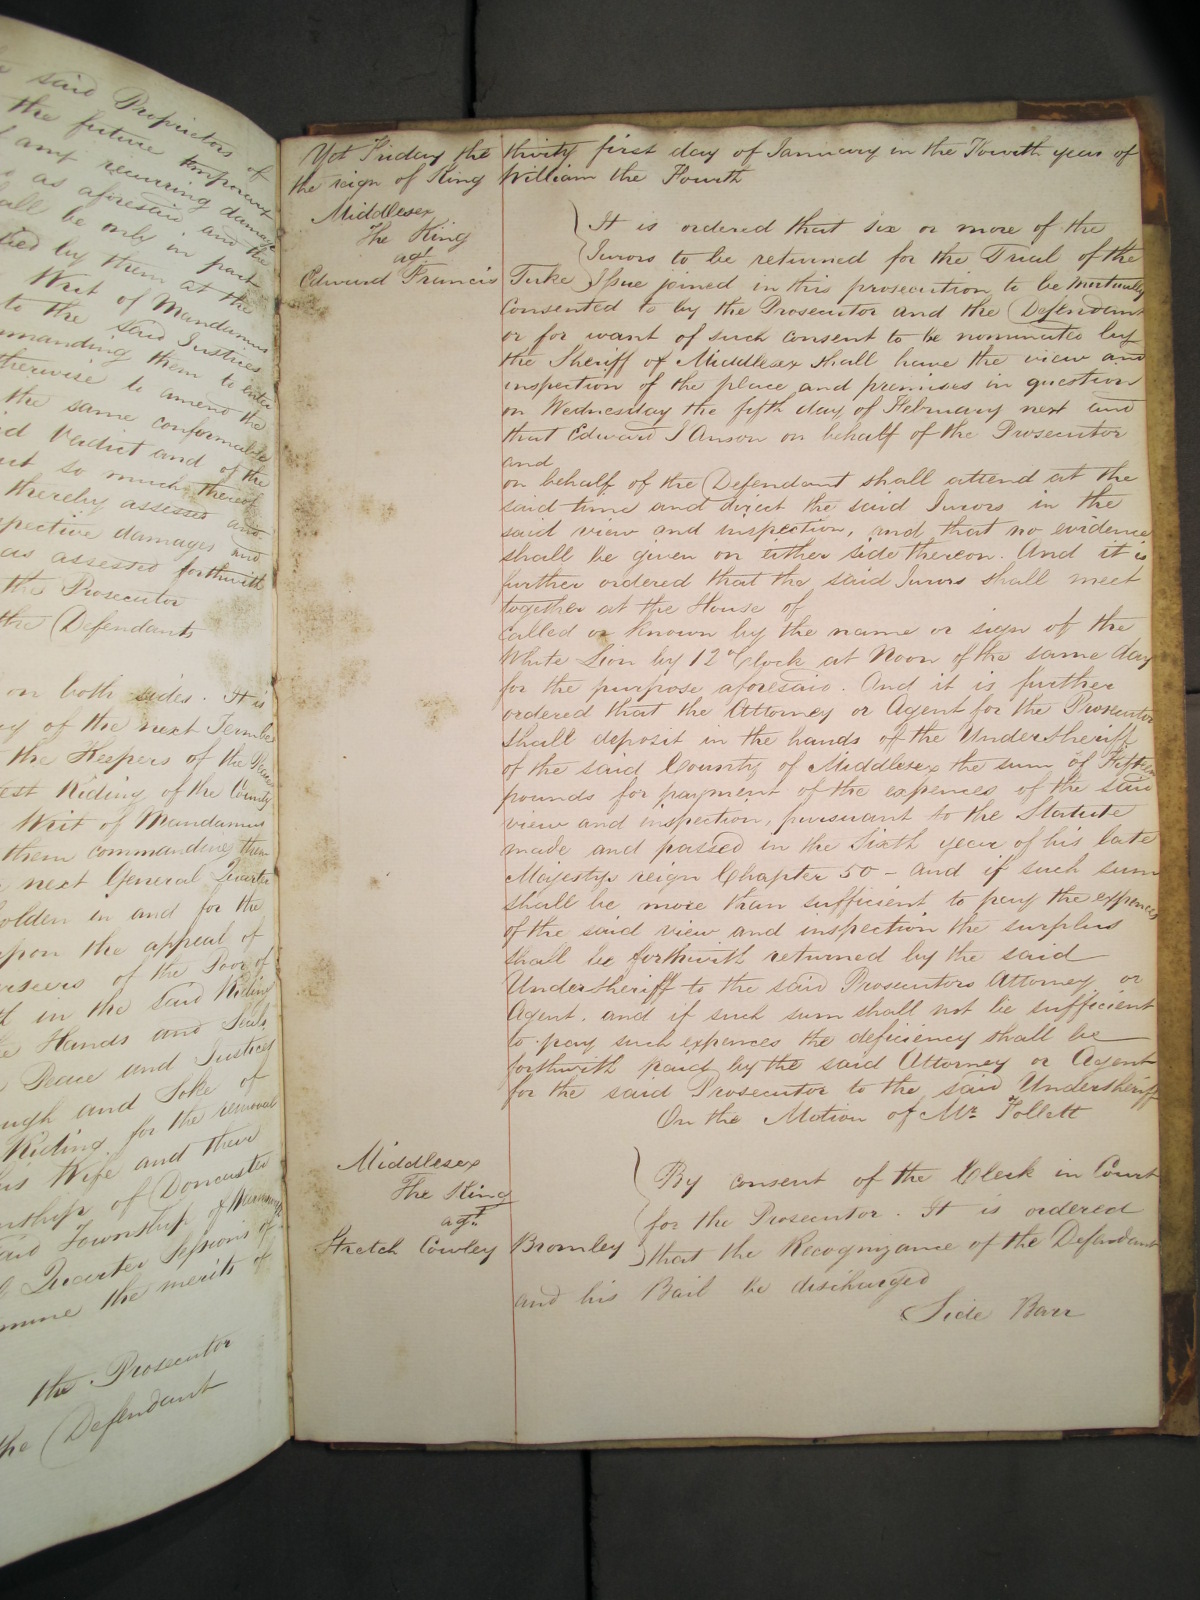 said Proprietors of
the future temporary
any recurring damage
as aforesaid and the
all be only in part
by them at the
Writ of Mandamus
to the said Justices
commanding them to enter
otherwise to amend the
the same conformable
Verdict and of the
so much thereof
thereby assessed and
respective damages and
as assessed forthwith
the Prosecutor
the Defendants
on both sides. It is
of the next Term be
the Keepers of the Peace
West Riding of the County
Writ of Mandamus
them commanding them
next General Quarter
holden in and for the
upon the appeal of
Overseers of the Poor of
in the said Riding
Hands and Seals
Peace and Justices
and Soke of
Riding for the removal
his Wife and their
Township of Doncaster
said Township of
Quarter Sessions of
the merits of
the Prosecutor
the Defendant
Yet Friday the thirty first day of January in the Fourth year of
the reign of King William the Fourth
Middlesex
The King
agt
Edward Francis Tuke
It is ordered that six or more of the
Jurors to be returned for the Trial of the
Issue joined in this prosecution to be mutually
consented to by the Prosecutor and the Defendant
or for want of such consent to be nominated by
the Sheriff of Middlesex shall have the view and
inspection of the place and premises in question
on Wednesday the fifth day of February next and
that Edward I'Anson on behalf of the Prosecutor
and
on behalf of the Defendant shall attend at the
said time and direct the said Jurors in the
said view and inspection, and that no evidence
shall be given on either side thereon. And it is
further ordered that the said Jurors shall meet
together at the House of
called or known by the name or sign of the
White Lion by 12 o'Clock at Noon of the same day
for the purpose aforesaid. And it is further
ordered that the Attorney or Agent for the Prosecutor
shall deposit in the hands of the Undersheriff
of the said County of Middlesex the sum of Fifteen
pounds for payment of the expences of the said
view and inspection, pursuant to the Statute
made and passed in the Sixth year of his late
Majestys reign Chapter 50 - and if such sum
shall be more than sufficient to pay the expences
of the said view and inspection the surplus
shall be forthwith returned by the said
Undersheriff to the said Prosecutors Attorney or
Agent. and if such sum shall not be sufficient
to pay such expences the deficiency shall be
forthwith paid by the said Attorney or Agent
for the said Prosecutor to the said Undersheriff
On the Motion of Mr. Follett
Middlesex
The King
agt
Stretch Cowley Bromley
By consent of the Clerk in Court
for the Prosecutor. It is ordered
that the Recognizance of the Defendant
and his Bail be discharged
Side Barr